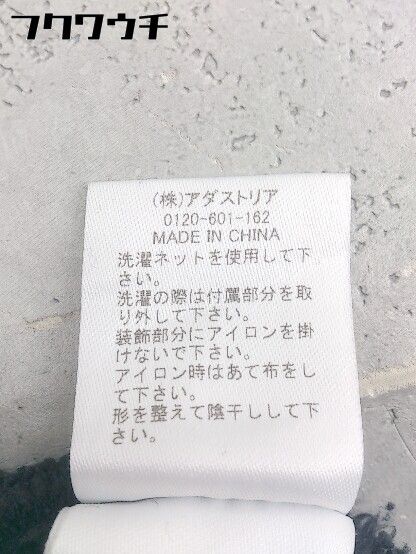 フクワウチ
(株)アダストリア
0120-601-162
MADE IN CHINA
洗濯ネットを使用して下
さい。
洗濯の際は付属部分を取
り外して下さい。
装飾部分にアイロンを掛
けないで下さい。
アイロン時はあて布をし
て下さい。
形を整えて陰干しして下
さい。